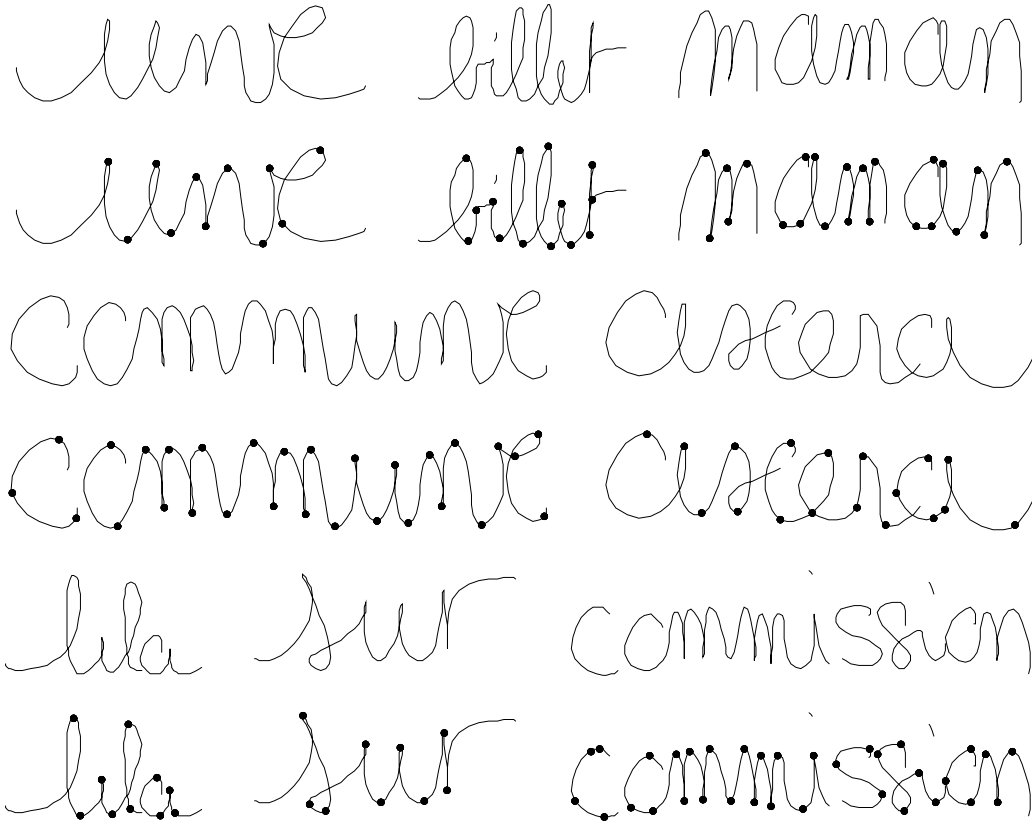 une billet maman
une billet maman
commune ascera
commune ascera
lila sur commission
lila sur commission